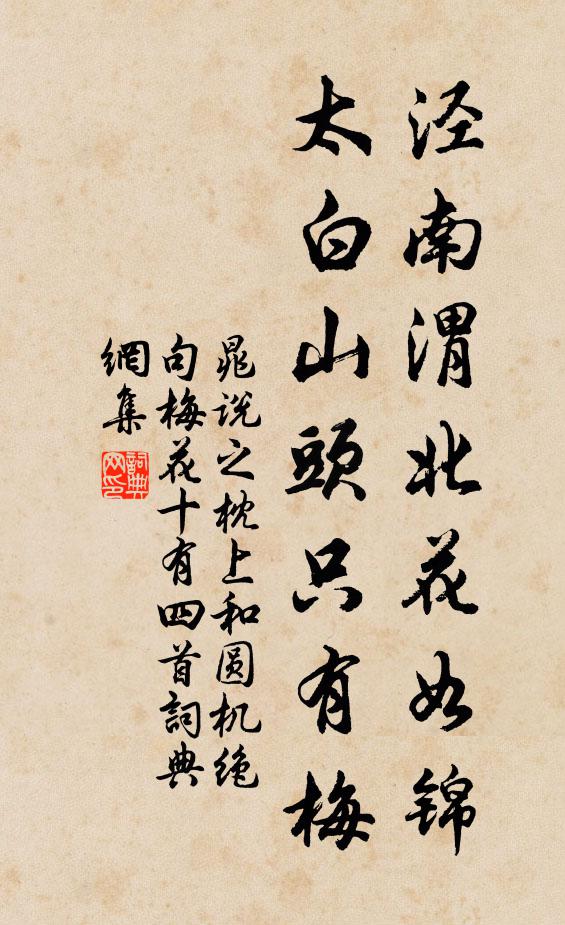 泾南渭北花如锦
太白山頭只有梅
晁说之枕上和圆机绝
句梅花十有四首詞典
網集
詞典
网印